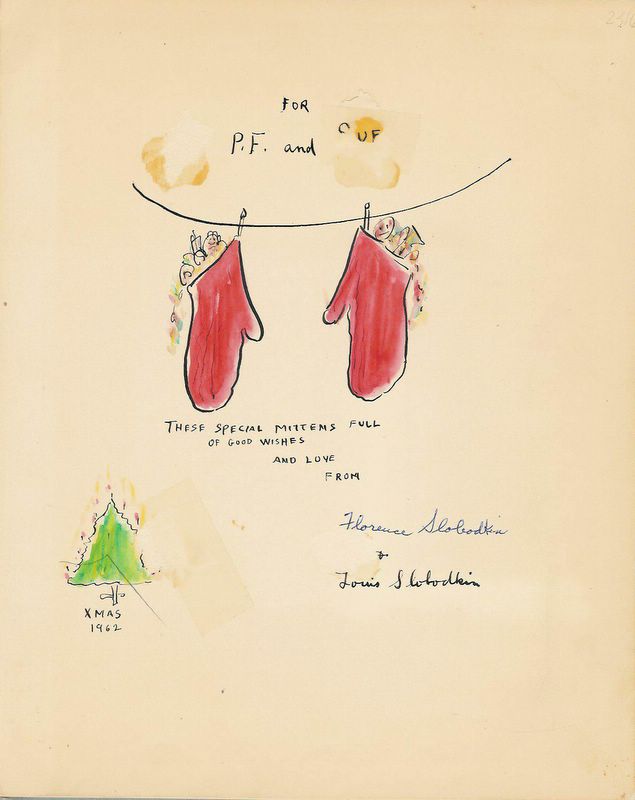 FOR
P.F. and OUF
THESE SPECIAL MITTENS FULL
OF GOOD WISHES
AND LOVE
FROM
Florence Slobodkin
&
Louis Slobodkin
XMAS
1962